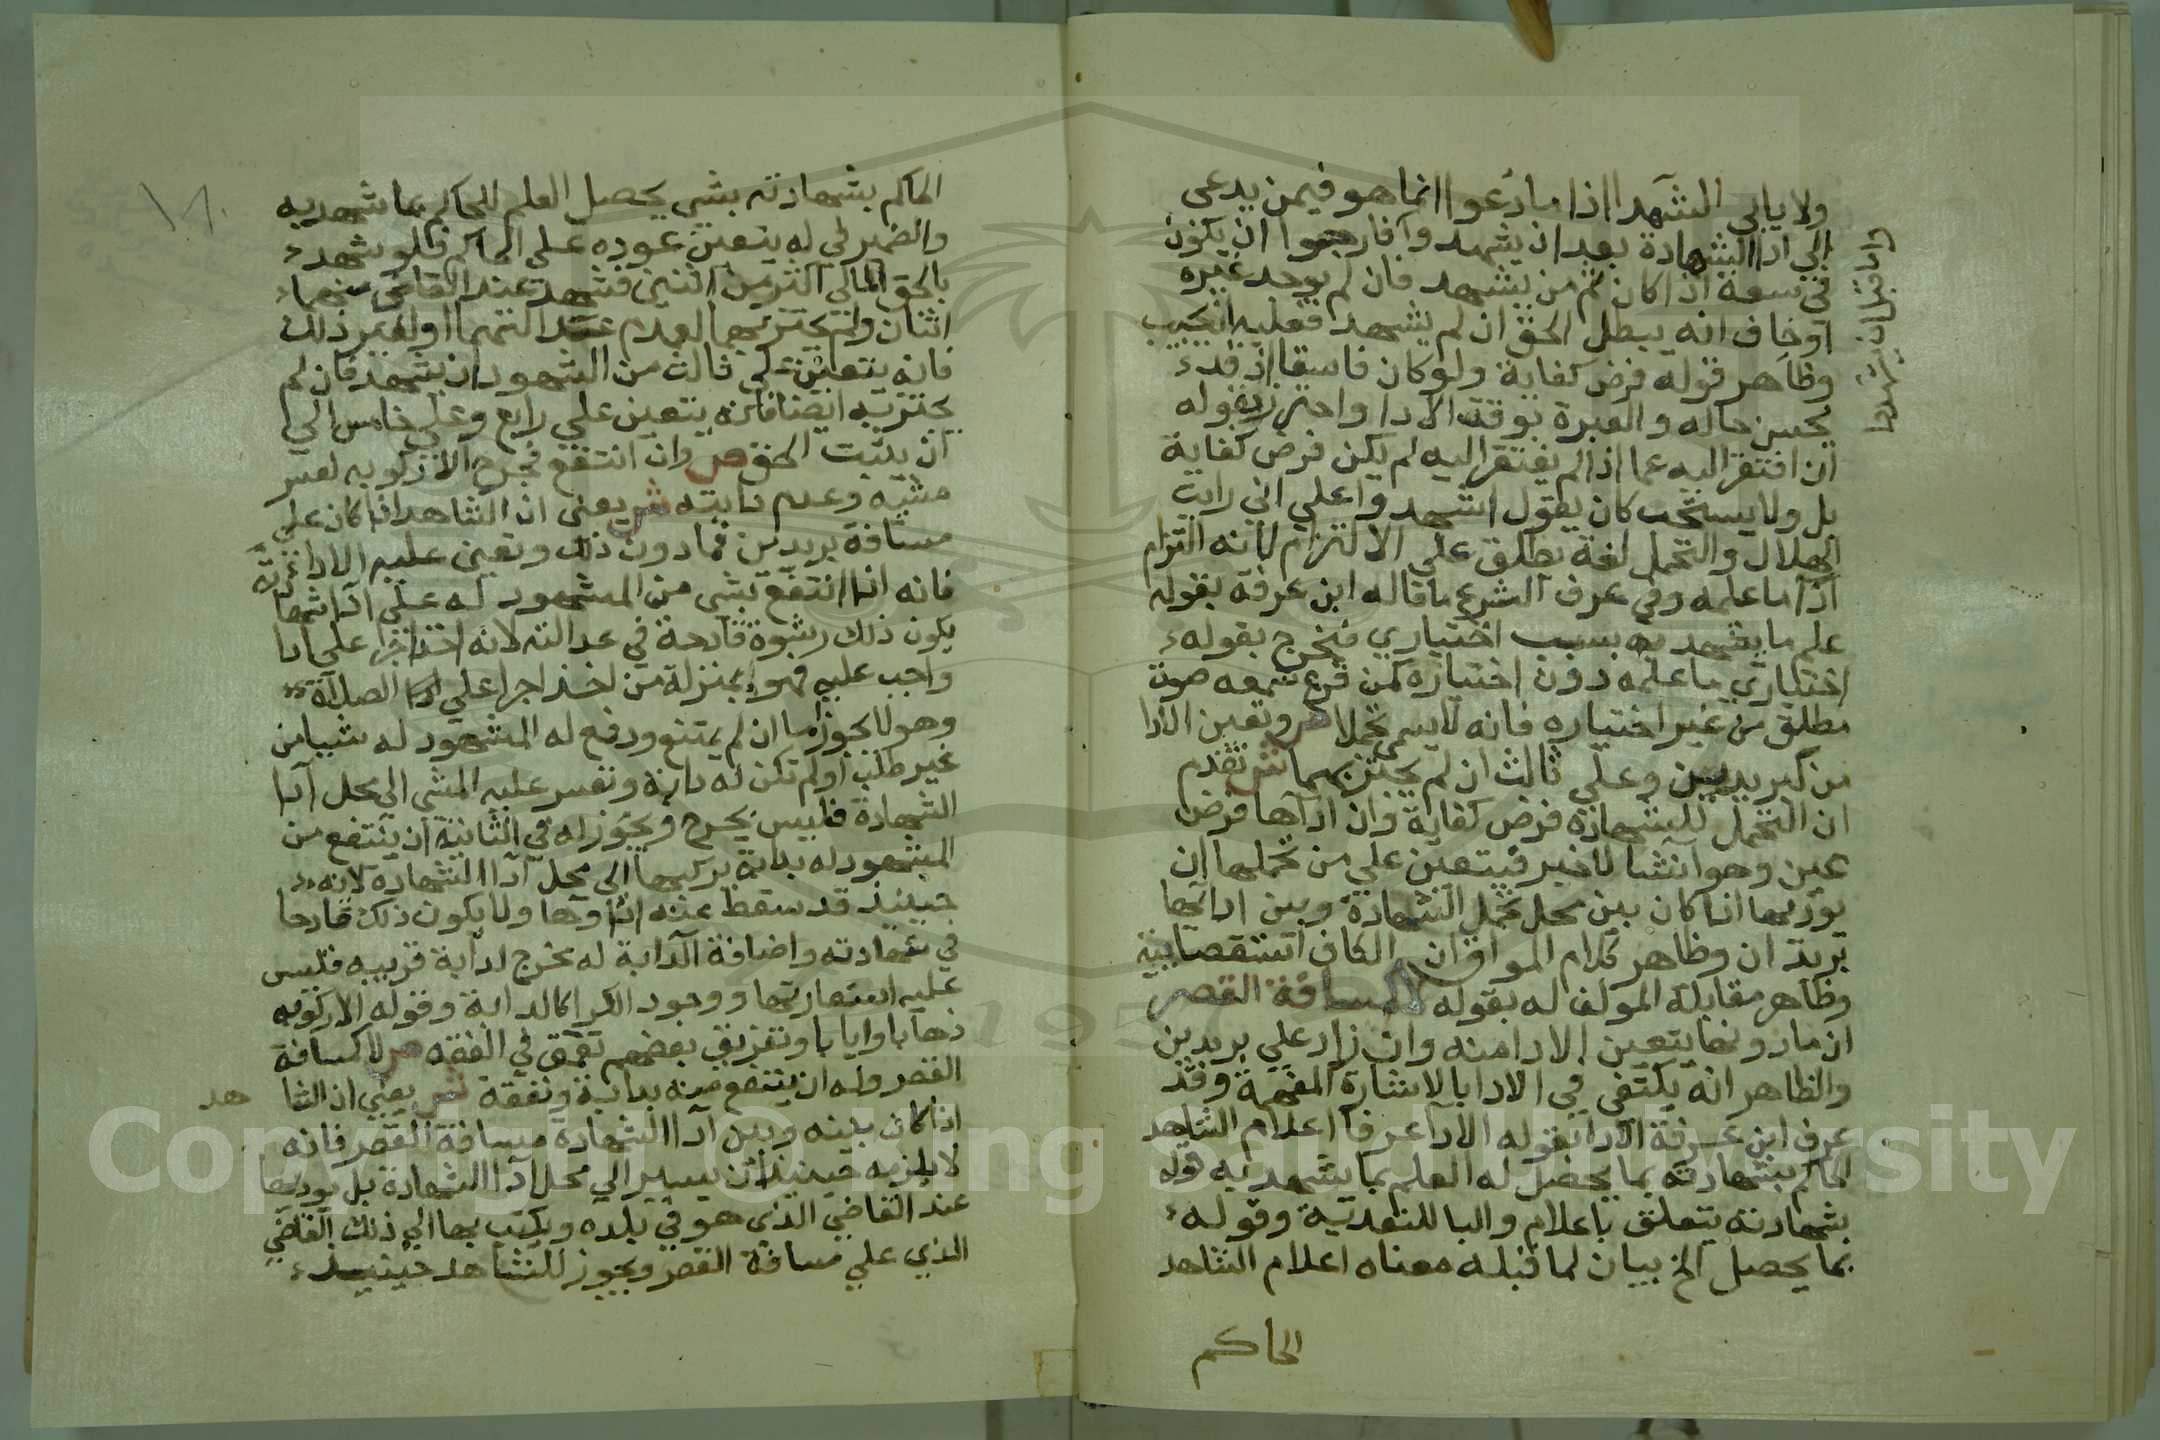 ولا يابي الشهدا اذا ما دعوا انما هو فيمن يدعى
الي ادا الشهادة بعد ان يشهد وارجوا ان يكون
في سعة اذا كان ثم من يشهد فان لم يوجد غيره
او خاف انه يبطل الحق ان لم يشهد فعليه ان يجيب
وظاهر قوله فرض كفاية ولو كان فاسقا اذ قد
يحسن حاله والعبرة بوقت الادا واحترز بقوله
ان افتقر اليه عما اذا لم يفتقر اليه لم يكن فرض كفاية
بل ولا يستحب كان يقول اشهد وا علي اني رايت
الهلال والتحمل لغة يطلق علي الالتزام لانه التزام
ادا ما علمه وفي عرف الشرع ما قاله ابن عرفة بقوله
علم ما يشهد به بسبب اختياري فخرج بقوله
اختياري ما علمه دون اختياره كمن قرع سمعه صوت
مطلق من غير اختياره فانه لا يسمى تحملا ص وتعين الادا
من كبريدين وعلي ثالث ان لم يجتز بهما ش تقدم
ان التحمل للشهادة فرض كفاية وان اداها فرض
عين وهو انشا لا خبر فيتعين علي من تحملها ان
يوديها اذا كان بين محل تحمل الشهادة وبين ادايها
بريد ان وظاهر كلام المواق ان الكاف استقصايية
وظاهر مقابلة المولف له بقوله لا كمسافة القصر
ان ما دونها يتعين الادا منه وان زاد علي بريدين
والظاهر انه يكتفي في الادا بالاشارة المفهمة وقد
عرف ابن عرفة الادا بقوله الادا عرفا اعلام الشاهد
الحاكم بشهادته بما يحصل له العلم بما يشهد به قوله
بشهادته يتعلق باعلام والبا للتعدية وقوله
بما يحصل الخ بيان لما قبله معناه اعلام الشاهد
الحاكم
الحاكم بشهادته بشي يحصل العلم للحاكم بما شهد به
والضمير في له يتعين عوده علي الحاكم فلو شهد
بالحق المالي اكثر من اثنين فشهد عند القاضي منهما
اثنان ولم يجتز بهما لعدم عدالتهما او لغير ذلك
فانه يتعين علي ثالث من الشهود ان يشهد فان لم
يجتز به ايضا فانه يتعين علي رابع وعلي خامس الي
ان يثبت الحق ص وان انتفع فجرح الا ركوبه لعسر
مشيه وعدم دابته ش يعني ان الشاهد اذا كان علي
مسافة بريدين فما دون ذلك وتعين عليه الادا
فانه اذا انتفع بشي من المشهود له علي ادا شهادته
يكون ذلك رشوة قادحة في عدالته لانه اخذ اجرا علي ادا
واجب عليه فهو بمنزلة من اخذ اجرا علي ادا الصلاة
وهو لا يجوز اما ان لم يمتنع ودفع له المشهود له شيا من
غير طلب او لم تكن له دابة وتعسر عليه المشي الي محل ادا
الشهادة فليس بجرح ويجوز له في الثانية ان ينتفع من
المشهود له بدابة يركبها الي محل ادا الشهادة لانه
حينيذ قد سقط عنه اداوها ولا يكون ذلك قادحا
في شهادته واضافة الدابة له مخرج لدابة قريبه فليس
عليه استعارتها ووجود الكرا كالدابة وقوله الا ركوبه
ذهابا وايابا وتفريق بعضهم تعمق في الفقه ص لا كمسافة
القصر وله ان ينتفع منه بدابة ونفقة ش يعني ان الشا هد
اذا كان بينه وبين ادا الشهادة مسافة القصر فانه
لا يلزمه حينيذ ان يسير الي محل ادا الشهادة بل يوديها
عند القاضي الذي هو في بلده ويكتب بها الي ذلك القاضي
الذي علي مسافة القصر ويجوز للشاهد حينيذ